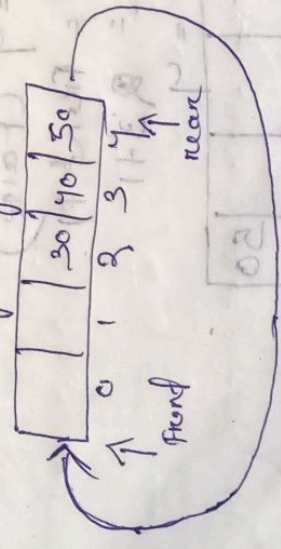 30 40 50
0 1 2 3 4
Front rear